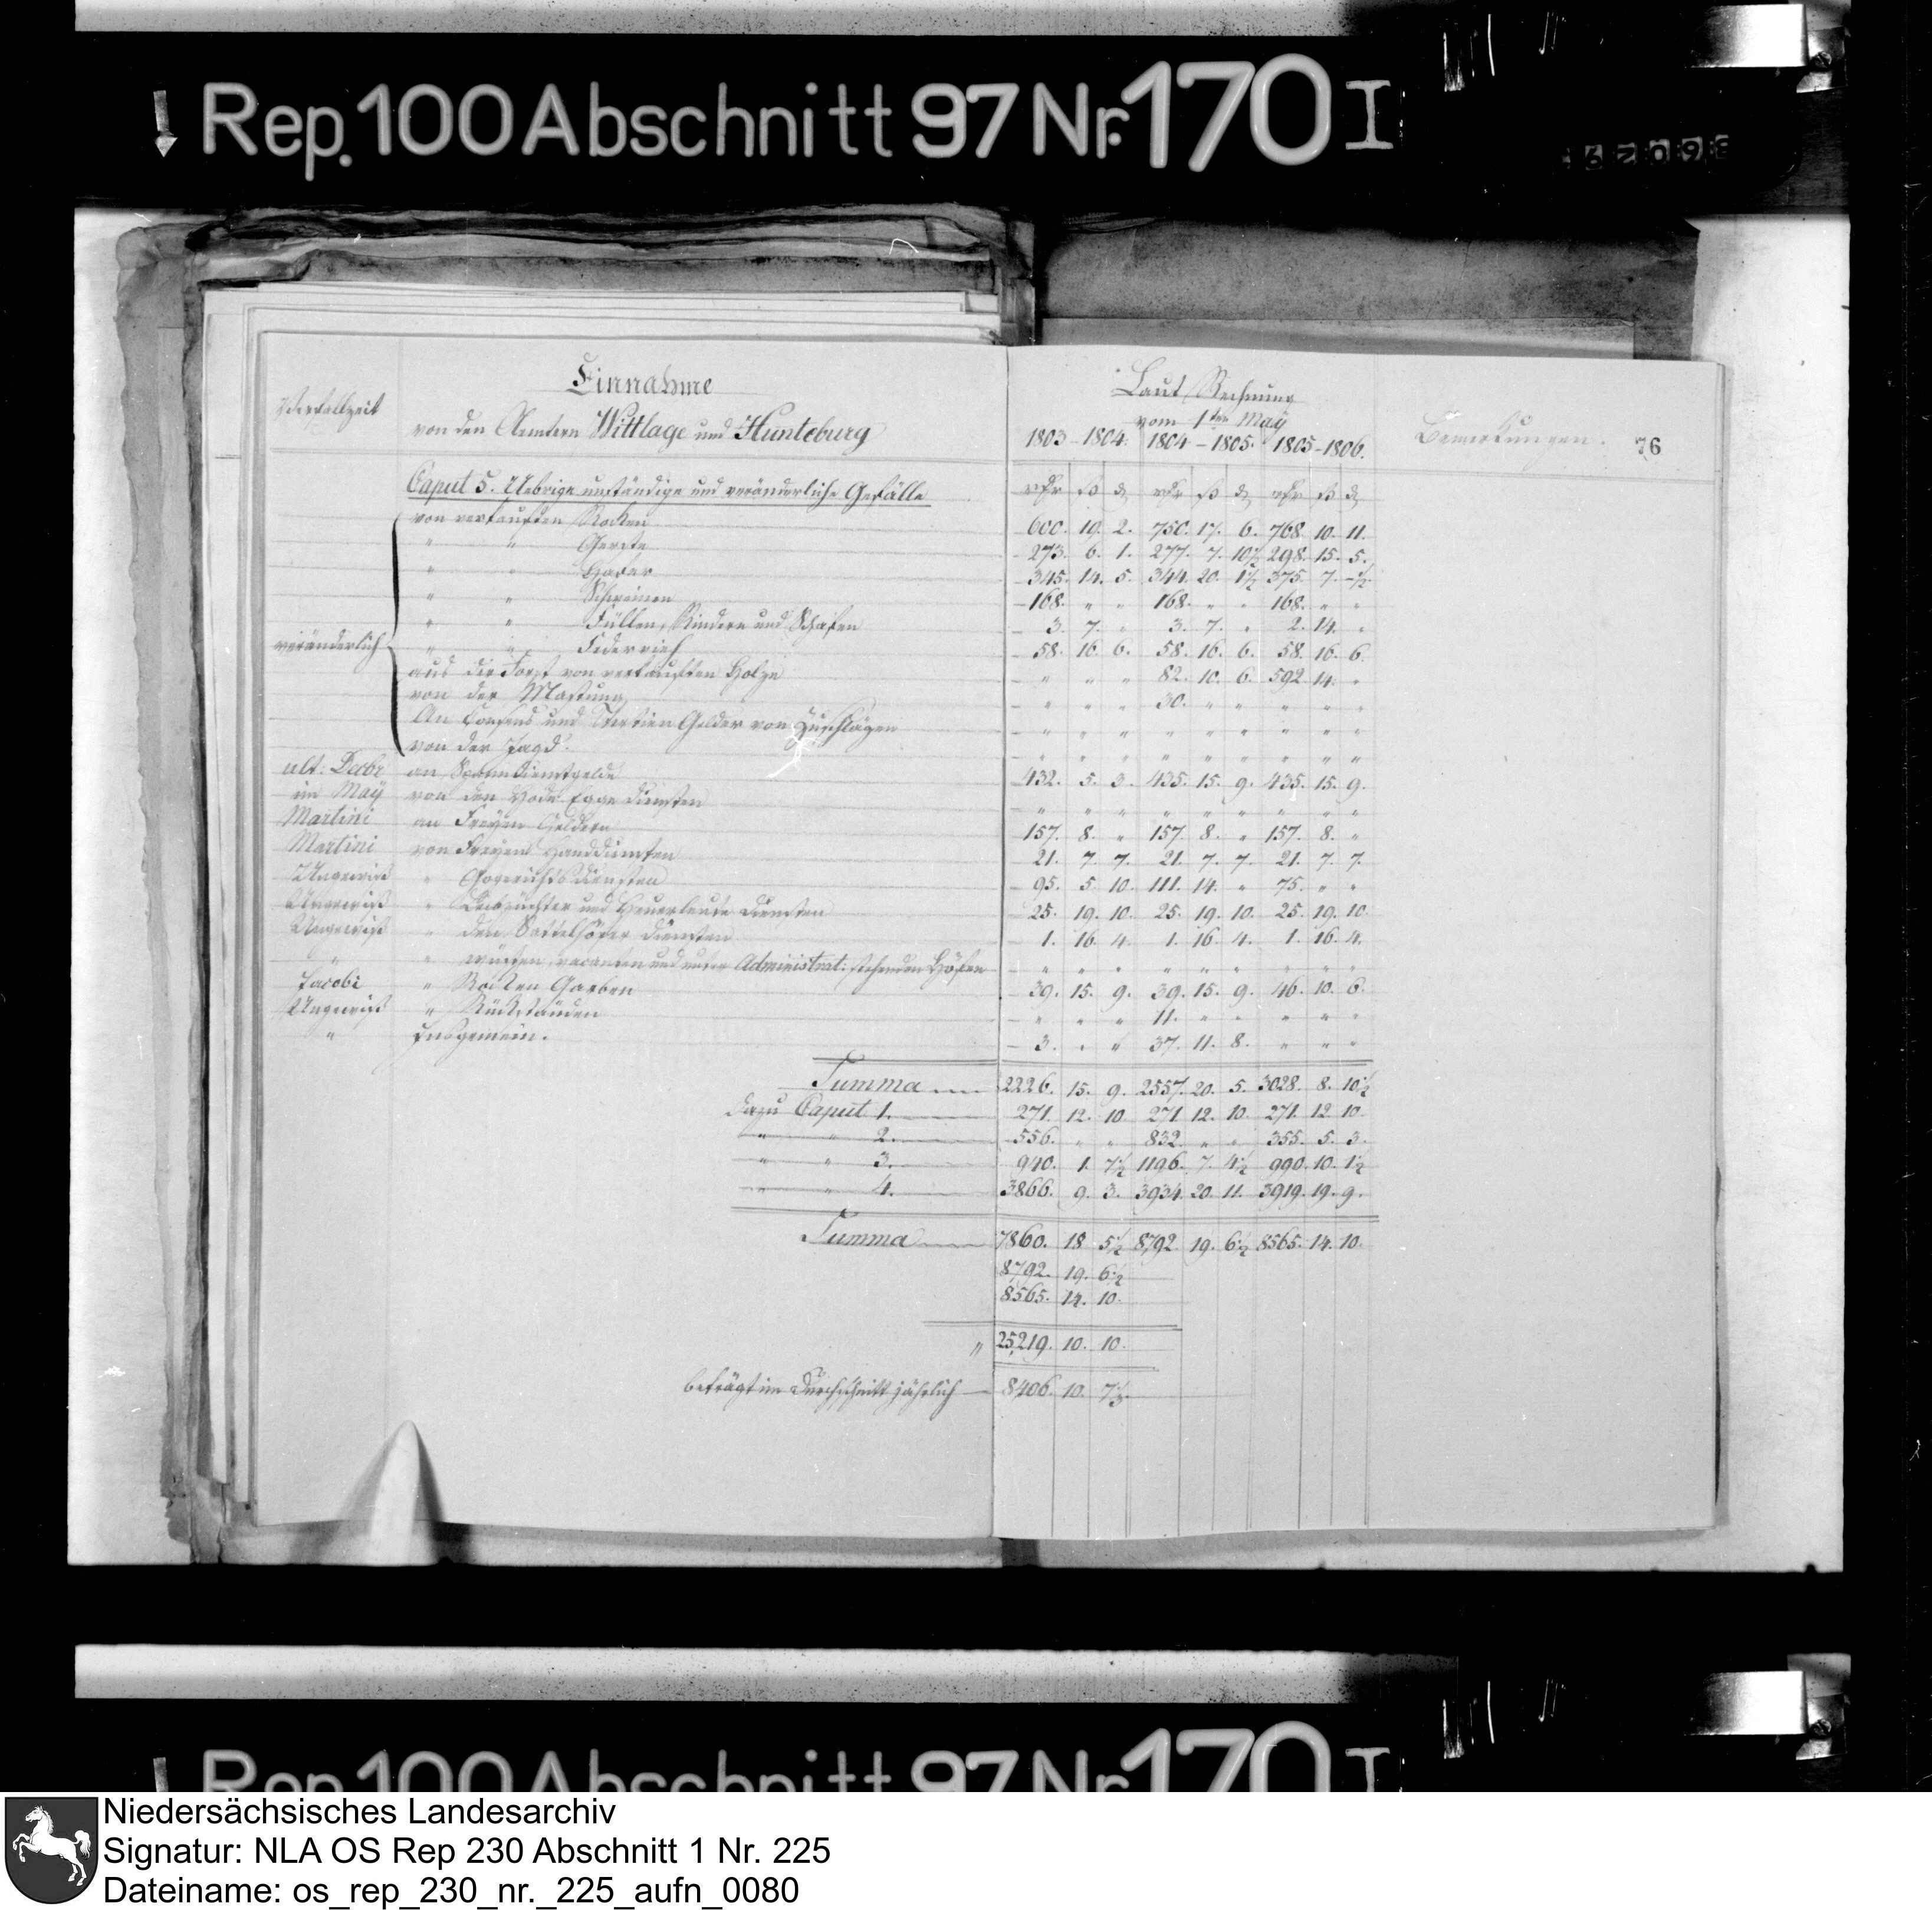 Rep. 100 Abschnitt 97 Nr. 170 I
Verfallzeit
Einnahme
von den Aemtern Wittlage und Hunteburg
Laut Rechnung
vom 1ten May
1803-1804. 1804-1805. 1805-1806.
Bemerkungen.
76
Caput 5. Uebrige unständige und veränderliche Gefälle
rthr ß d rthr ß d rthr ß d
von verkauften Rocken 600. 19. 2. 750. 17. 6. 768. 10. 11.
" " Gerste 273. 6. 1. 277. 7. 10½ 298. 15. 5.
" " Hafer 345. 14. 5. 344. 20. 1½ 375. 7. -½
" " Schweinen 168. " " 168. " " 168. " "
" " Füllen, Rindern und Schafen 3. 7. " 3. 7. " 2. 14. "
veränderlich
" " Federvieh 58. 16. 6. 58. 16. 6. 58. 16. 6.
aus der Forst von verkauften Holze " " " 82. 10. 6. 592. 14. "
von der Mastung " " " 30. " " " " "
An Consens und Tertien Gelder von Zuschlägen " " " " " " " " "
von der Jagd. " " " " " " " " "
ult. Decbr an Spanndienstgelde 432. 5. 3. 435. 15. 9. 435. 15. 9.
im May von den Egge diensten " " " " " " " " "
Martini an Freyen Geldern 157. 8. " 157. 8. " 157. 8. "
Martini von Freyen Handdiensten 21. 7. 7. 21. 7. 7. 21. 7. 7.
Ungewiß " Gogerichts diensten 95. 5. 10. 111. 14. " 75. " "
Ungewiß " Leibzüchter und Heuerleute Diensten 25. 19. 10. 25. 19. 10. 25. 19. 10.
Ungewiß " den Sattelhöfer Diensten 1. 16. 4. 1. 16. 4. 1. 16. 4.
" " wüsten, vacanten und unter Administrat: stehenden Höfen " " " " " " " " "
Jacobi " Rocken Garben 39. 15. 9. 39. 15. 9. 46. 10. 6.
Ungewiß " Rückständen " " " 11. " " " " "
" Insgemein. 3. " " 37. 11. 8. " " "
Summa 2226. 15. 9. 2557. 20. 5. 3028. 8. 10½
dazu Caput 1. 271. 12. 10. 271. 12. 10. 271. 12. 10.
" " 2. 556. " " 832. " " 355. 5. 3.
" " 3. 940. 1. 7½ 1196. 7. 4½ 990. 10. 1½
" " 4. 3866. 9. 3. 3934. 20. 11. 3919. 19. 9.
Summa 7860. 18. 5½ 8792. 19. 6½ 8565. 14. 10.
8792. 19. 6½
8565. 14. 10.
" 25,219. 10. 10.
beträgt im Durchschnitt jährlich 8406. 10. 7⅓.
Rep. 100 Abschnitt 97 Nr. 170 I
Niedersächsisches Landesarchiv
Signatur: NLA OS Rep 230 Abschnitt 1 Nr. 225
Dateiname: os_rep_230_nr._225_aufn_0080